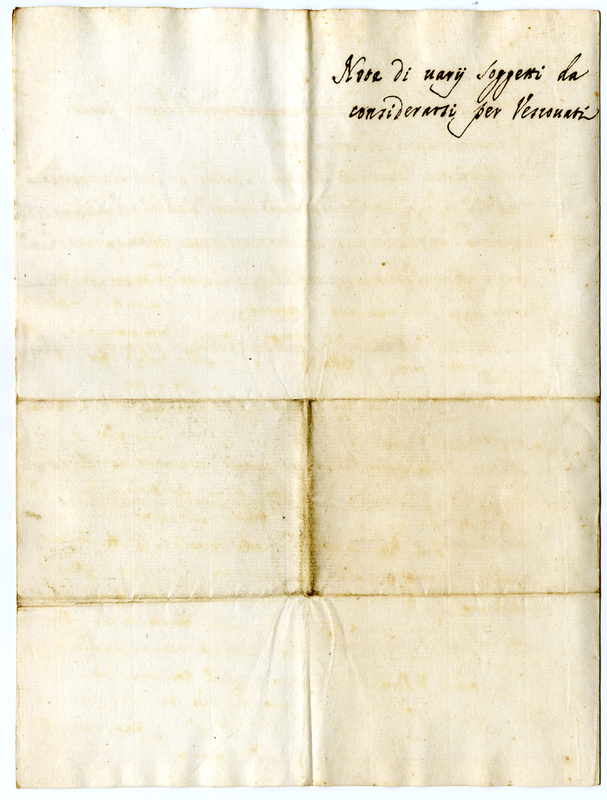 Nota di uarij soggetti da
considerarsi per Vescouati